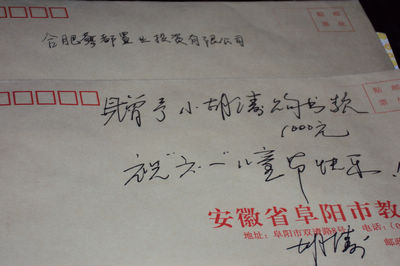 贴 邮
票 处
合肥都置业投资有限公司
贴 邮
票 处
赠予小胡涛购书款
1000元
祝“六一”儿童节快乐!
安徽省阜阳市教
地址:阜阳市双清路8号 电话:(0
邮政
胡涛